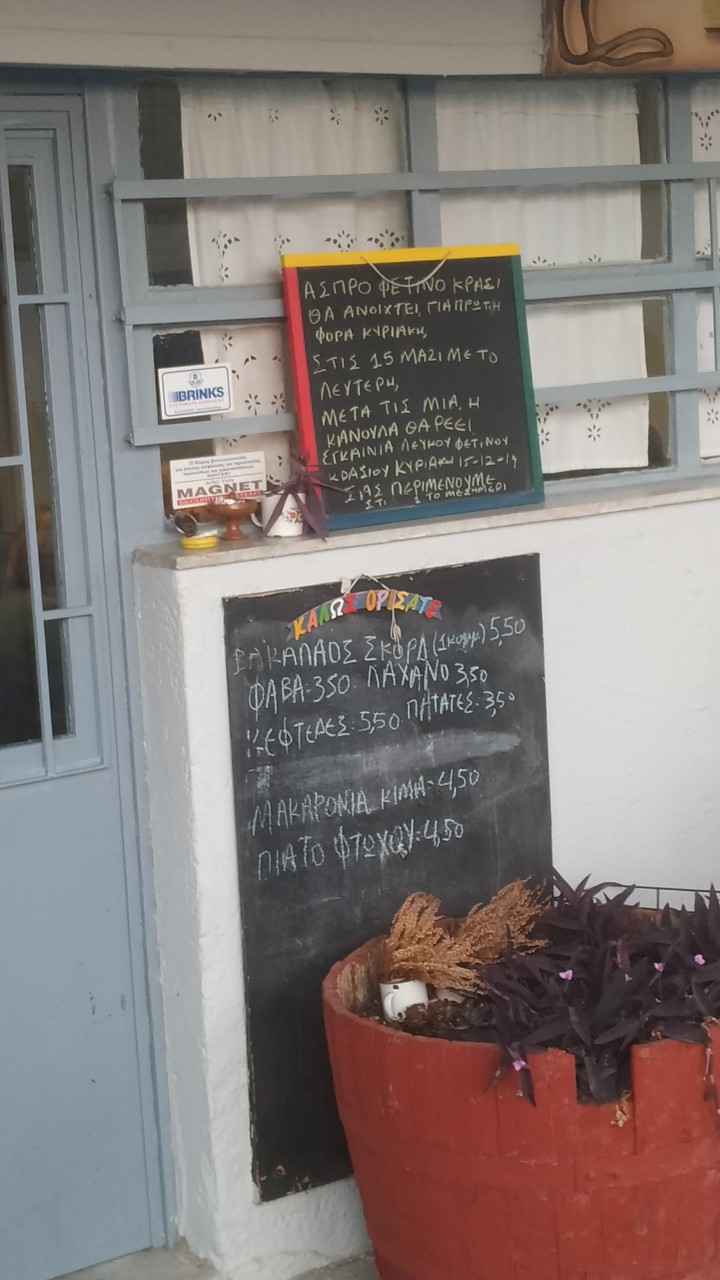 ΑΣΠΡΟ ΦΕΤΙΝΟ ΚΡΑΣΙ
ΘΑ ΑΝΟΙΧΤΕΙ, ΓΙΑ ΠΡΩΤΗ
ΦΟΡΑ ΚΥΡΙΑΚΗ,
ΣΤΙΣ 15 ΜΑΖΙ ΜΕ ΤΟ
ΛΕΥΤΕΡΗ,
ΜΕΤΑ ΤΙΣ ΜΙΑ, Η
ΚΑΝΟΥΛΑ ΘΑ ΡΕΕΙ
ΕΓΚΑΙΝΙΑ ΛΕΥΚΟΥ ΦΕΤΙΝΟΥ
ΚΡΑΣΙΟΥ ΚΥΡΙΑΚΗ 15-12-19
ΣΑΣ ΠΕΡΙΜΕΝΟΥΜΕ
ΤΟ ΜΕΣΗΜΕΡΙ
BRINKS
MAGNET
ΚΑΛΩΣ ΟΡΙΣΑΤΕ
ΒΑΚΑΛΑΟΣ ΣΚΟΡΔ (1κομμ) 5,50
ΦΑΒΑ: 350 ΛΑΧΑΝΟ 3,50
ΚΕΦΤΕΔΕΣ: 5,50 ΠΑΤΑΤΕΣ: 3,50
ΜΑΚΑΡΟΝΙΑ ΚΙΜΑ: 4,50
ΠΙΑΤΟ ΦΤΩΧΟΥ: 4,50